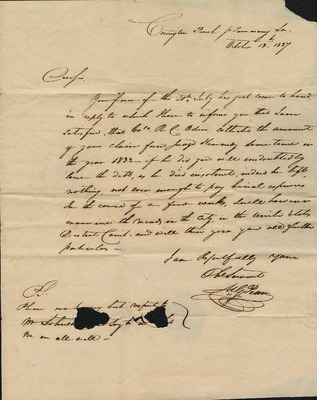 Covington Parish St Tammany La.
October 13th 1837
Dear Sir,
Your favor of the 20th July has just come to hand
in reply to which I have to inform you that I am
satisfied, that Capt. R. C. Oden, collected the amount
of your claim from Judge some time in
the year 1832 - if he did you will undoubtedly
loose the debt, as he died insolvent, indeed he left
nothing, not even enough to pay burial expenses
In the course of a few weeks, I will however
examine the records, in the City in the United States
District Court, and will then give you all further
particulars -
I am Respectfully yours
Obt Servant
Penn
P.S.
Please my best respects to
Mr Johnston
we are all well -